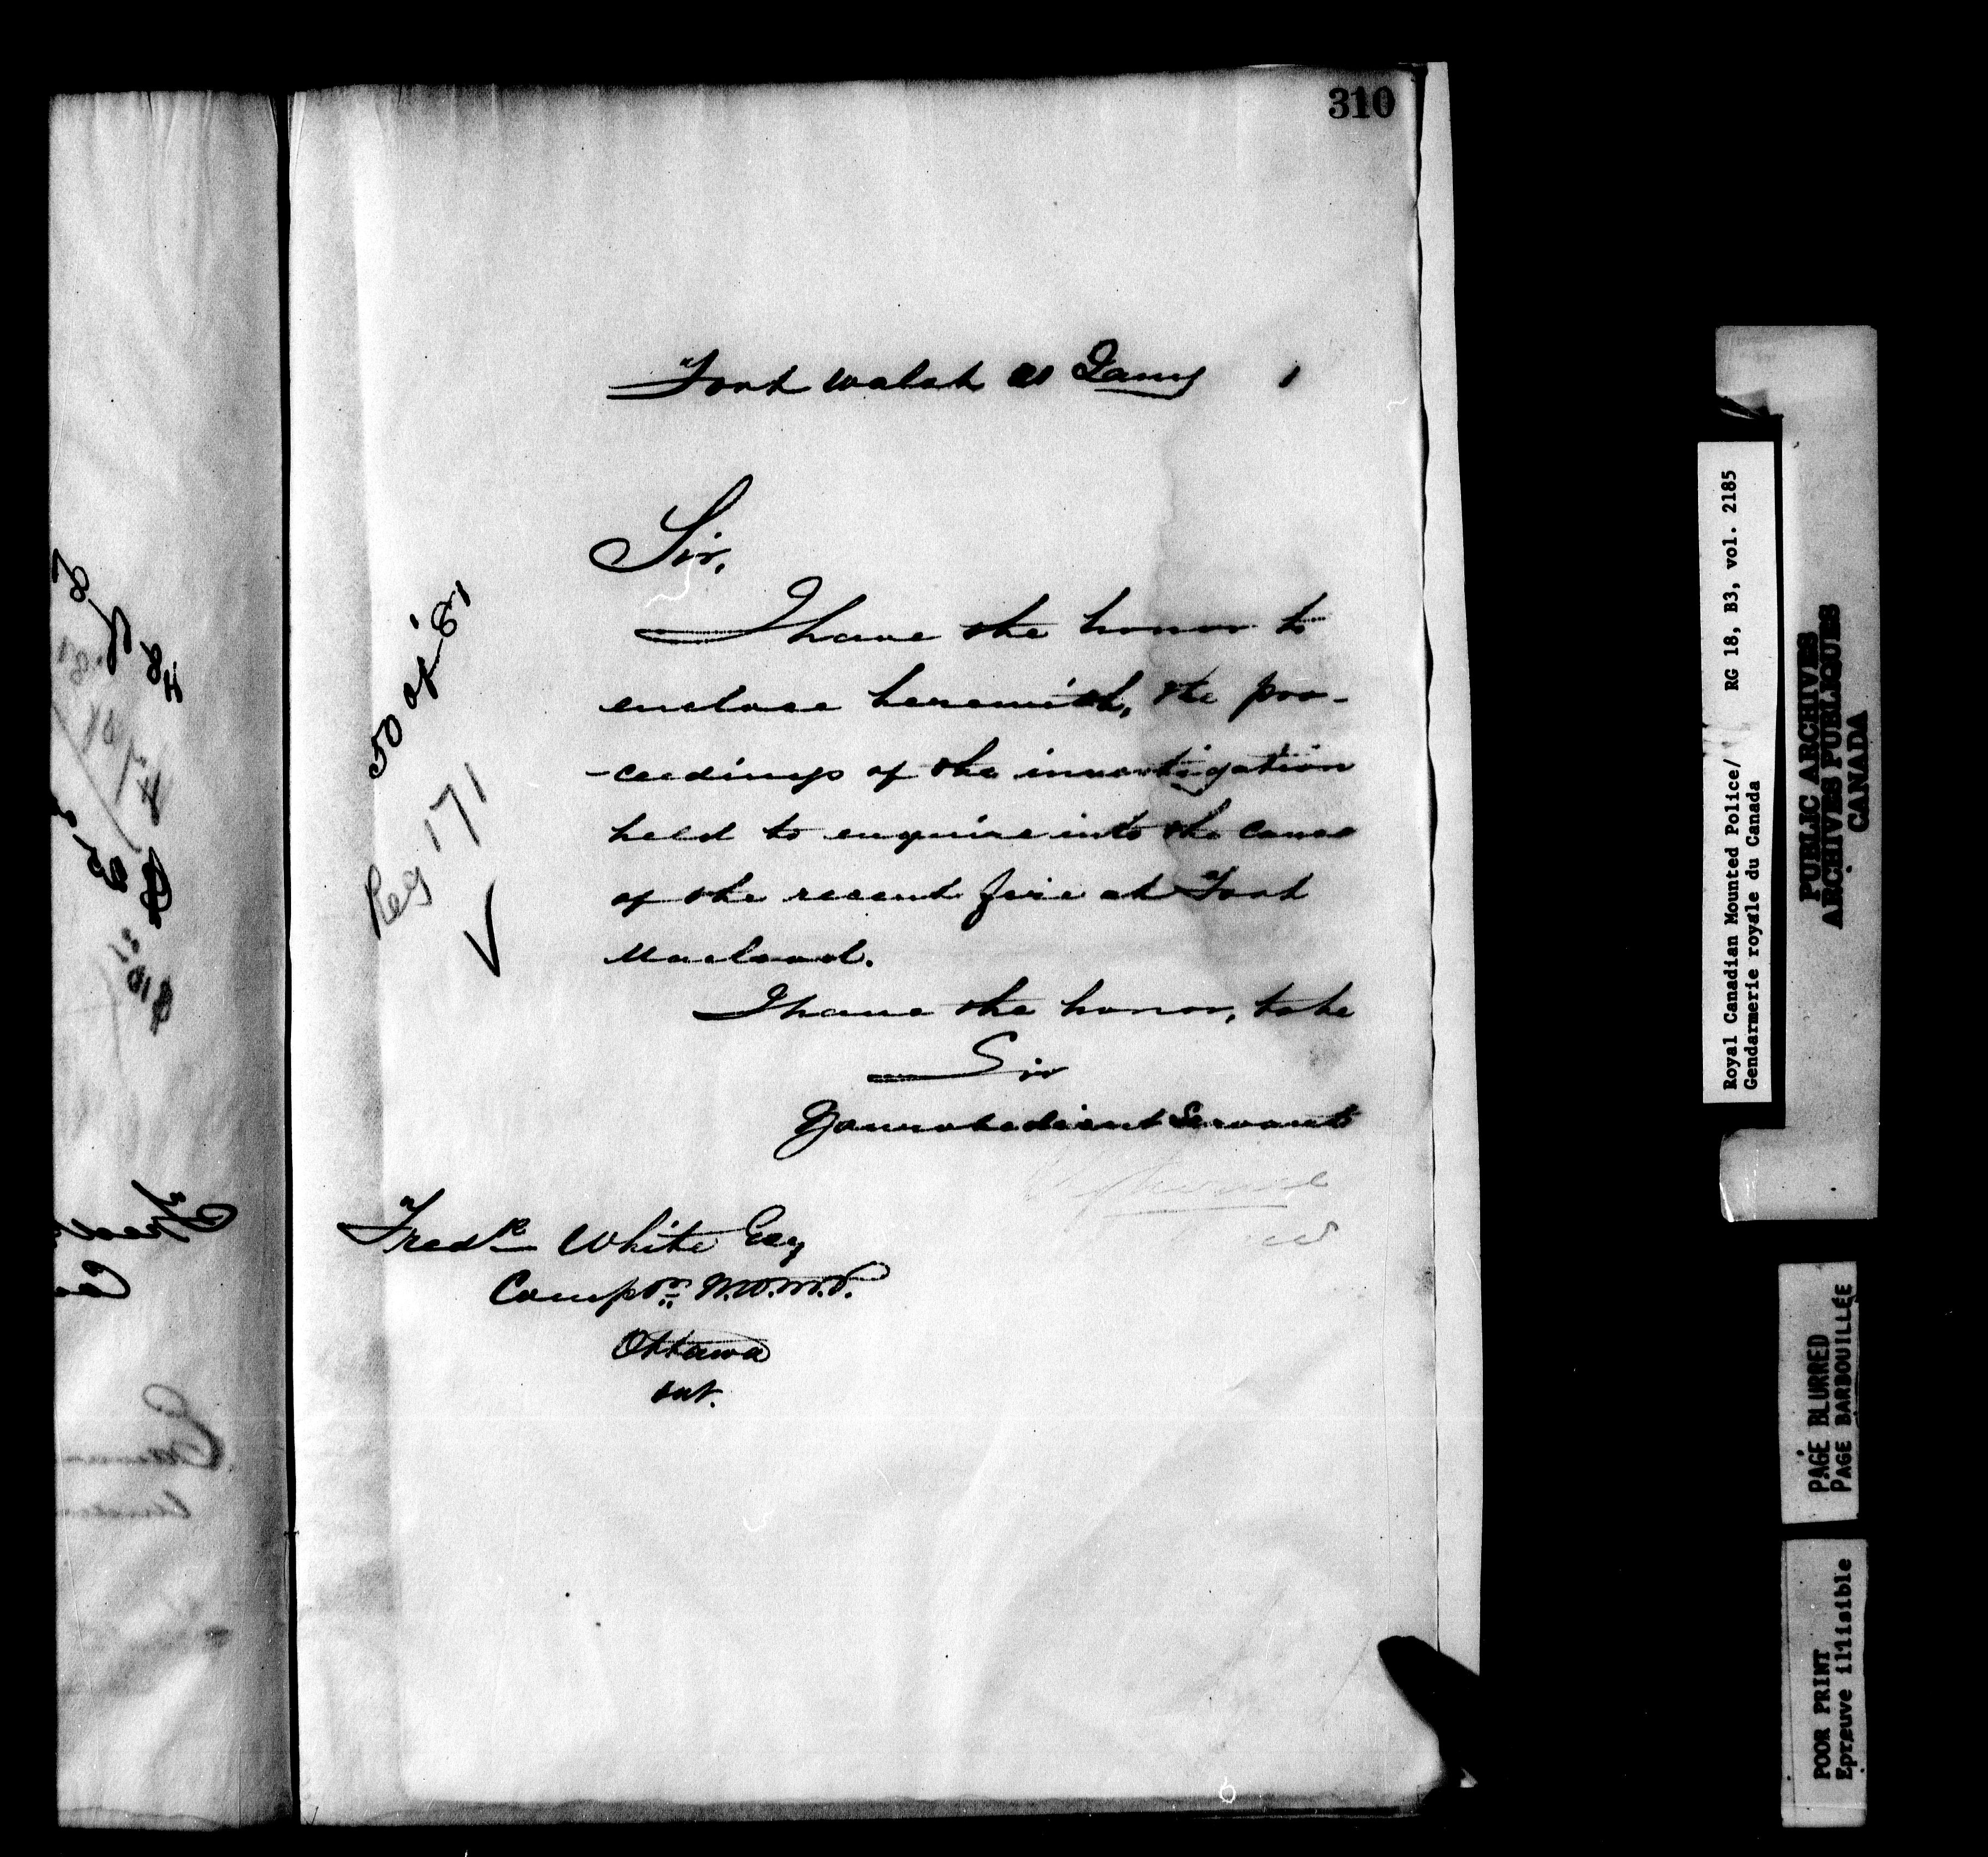 310
Fort Walsh Jany 1
Sir,
I have the honor to
enclose herewith, the pro-
-ceedings of the investigation
held to enquire into the cause
of the recent fire at Fort
Macleod.
I have the honor, to be
Sir
Your obedient Servant
Fredk White Esq
Comptr N.W.M.P.
Ottawa
Ont.
50 of '81
Reg 171
Royal Canadian Mounted Police/ RG 18, B3, vol. 2185
Gendarmerie royale du Canada
PUBLIC ARCHIVES
ARCHIVES PUBLIQUES
CANADA
PAGE BLURRED
PAGE BARBOUILLÉE
POOR PRINT
Epreuve illisible